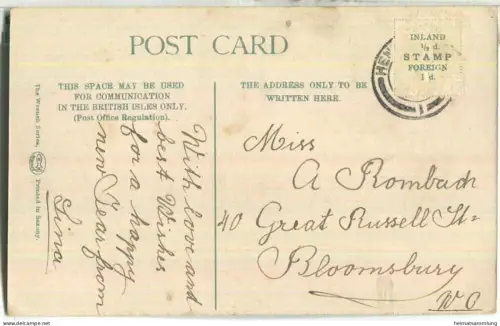 POST CARD
INLAND
½ d.
STAMP
FOREIGN
1 d.
HEN
THIS SPACE MAY BE USED
FOR COMMUNICATION
IN THE BRITISH ISLES ONLY.
(Post Office Regulation).
THE ADDRESS ONLY TO BE
WRITTEN HERE.
The Wrench Series,
Printed in Saxony.
With love and
best Wishes
for a happy
new Year from
Lina
Miss
A Rombach
40 Great Russell St.
Bloomsbury
W C
heimatsammlung.de